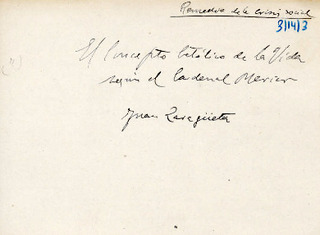 Remedio de la crisis social
3/14/3
El Concepto Católico de la Vida
según el Cardenal Mercier
Juan Zaragüeta